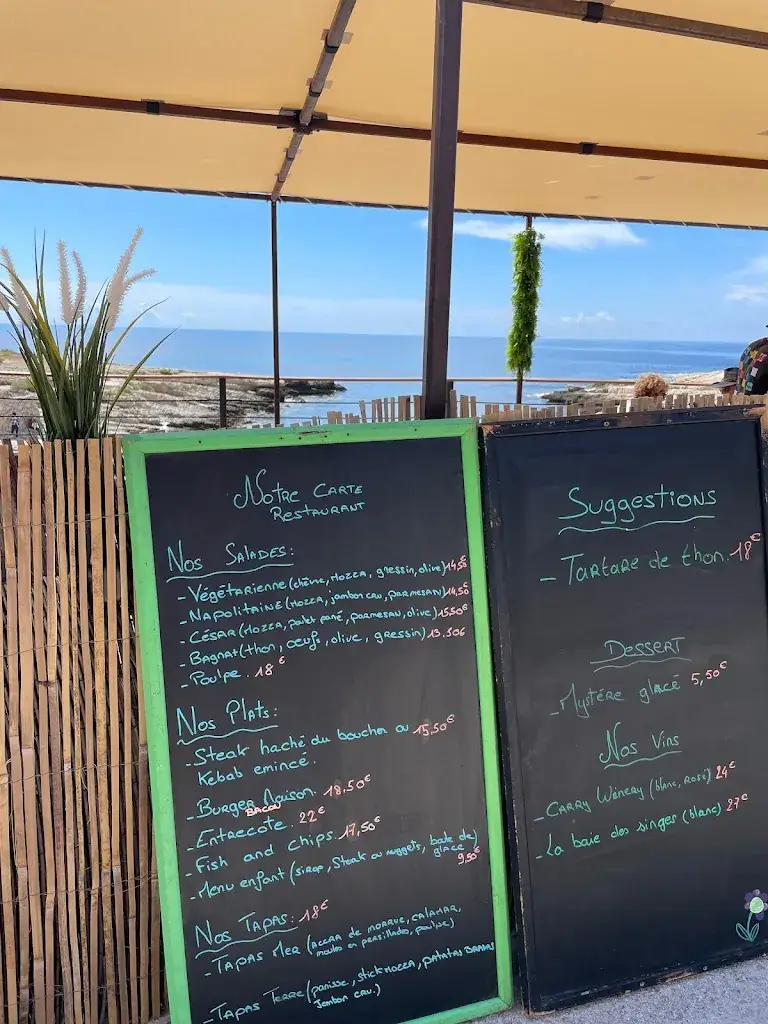 Notre Carte
Restaurant
Nos Salades:
- Végétarienne (chèvre, mozza, gressin, olive) 14,50€
- Napolitaine (mozza, jambon cru, parmesan) 14,50€
- César (mozza, poulet pané, parmesan, olive) 15,50€
- Bagnat (thon, oeufs, olive, gressin) 13.50€
- Poulpe. 18€
Nos Plats:
- Steak haché du boucher ou 15,50€
Kebab emincé.
- Burger Maison. 18,50€
Bacon
- Entrecote. 22€
- Fish and chips. 17,50€
- Menu enfant (sirop, Steak ou nuggets, boule de)
glace 9,50€
Nos Tapas: 18€
- Tapas Mer (accra de morrue, calamar,
moules en persillades, poulpe)
- Tapas Terre (panisse, stick mozza, patatas bravas
Jambon cru.)
Suggestions
- Tartare de thon. 18€
Dessert
- Mystére glacé 5,50€
Nos Vins
- Carry Winery (blanc, rosé) 24€
- La baie des singes (blanc) 27€